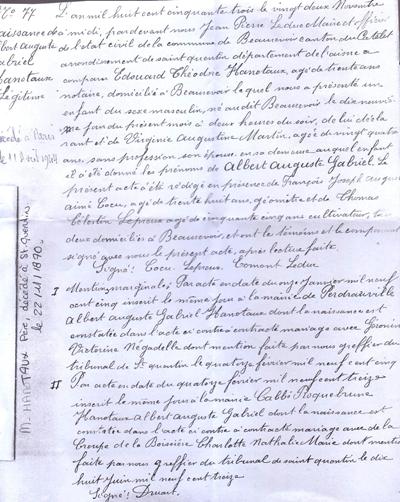 N° 77.
Naissance de
Albert Auguste
Gabriel
Hanotaux
Légitime
décédé à Paris
le 11 Avril 1944
M. HANOTAUX Père décédé à St Quentin
le 22.11.1890.
L'an mil huit cent cinquante trois le vingt deux Novembre
à midi, par devant nous Jean Pierre Leduc Maire et officier
de l'état civil de la commune de Beaurevoir canton du Catelet
arrondissement de saint quentin département de l'aisne a
comparu Edouard Théodore Hanotaux, agé de trente ans
notaire, domicilié à Beaurevoir lequel nous a présenté un
enfant du sexe masculin, né audit Beaurevoir le dix neuviè-
me jour du présent mois à deux heures du soir, de lui décla-
rant et de Virginie Augustine Martin, agée de vingt quatre
ans, sans profession, son épouse, en sa demeure, auquel enfant
il a été donné les prénoms de Albert Auguste Gabriel. Le
présent acte a été rédigé en présence de François Joseph Augus
aimé Cocu, agé de trente huit ans, géomètre et de Thomas
Célestin Lepreux agé de cinquante cinq ans cultivateur, tous
deux domiciliés à Beaurevoir, et ont les témoins et le comparant
signé avec nous le présent acte, après lecture faite.
Signé: Cocu. Lepreux. Leduc
I Mentions marginales; Par acte en date du onze Janvier mil neuf
cent cinq inscrit le même jour à la mairie de
Albert Auguste Gabriel Hanotaux dont la naissance est
constatée dans l'acte ci contre a contracté mariage avec
Victorine Négadelle dont mention faite par nous greffier du
tribunal de St quentin le quatorze février mil neuf cent cinq
II Par acte en date du quatorze février mil neuf cent treize
inscrit le même jour à la mairie Roquebrune
Hanotaux Albert Auguste Gabriel dont la naissance est
constatée dans l'acte ci contre a contracté mariage avec de la
Croupe de la Boissière Charlotte Nathalie Marie dont mention
faite par nous greffier du tribunal de saint quentin le dix
huit Juin mil neuf cent treize
Signé: Druart.